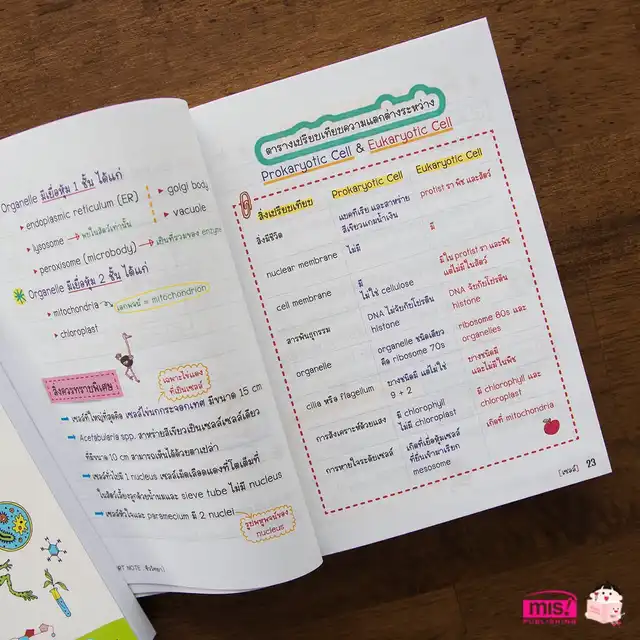 Organelle มีเยื่อหุ้ม 1 ชั้น ได้แก่
endoplasmic reticulum (ER)
golgi body
lysosome → พบในสัตว์เท่านั้น
vacuole
peroxisome (microbody) → เป็นที่รวมของ enzyme
Organelle มีเยื่อหุ้ม 2 ชั้น ได้แก่
mitochondria
เอกพจน์ = mitochondrion
chloroplast
สิ่งควรทราบพิเศษ
เฉพาะไข่แดง
ที่เป็นเซลล์
เซลล์ที่ใหญ่ที่สุดคือ เซลล์ไข่นกกระจอกเทศ มีขนาด 15 cm
Acetabularia spp. สาหร่ายสีเขียวเป็นเซลล์เซลล์เดียว
ที่มีขนาด 10 cm สามารถเห็นได้ด้วยตาเปล่า
เซลล์ทั่วไปมี 1 nucleus เซลล์เม็ดเลือดแดงที่โตเต็มที่
ในสัตว์เลี้ยงลูกด้วยน้ำนมและ sieve tube ไม่มี nucleus
เซลล์ตับและ paramecium มี 2 nuclei
รูปพหูพจน์ของ
nucleus
ART NOTE (ชีววิทยา)
ตารางเปรียบเทียบความแตกต่างระหว่าง
Prokaryotic Cell & Eukaryotic Cell
สิ่งเปรียบเทียบ
Prokaryotic Cell
Eukaryotic Cell
สิ่งมีชีวิต
แบคทีเรีย และสาหร่าย
สีเขียวแกมน้ำเงิน
protist รา พืช และสัตว์
nuclear membrane
ไม่มี
มี
cell membrane
มี
ไม่ใช่ cellulose
มีใน protist รา และพืช
แต่ไม่มีในสัตว์
สารพันธุกรรม
DNA ไม่จับกับโปรตีน
histone
DNA จับกับโปรตีน
histone
organelle
organelle ชนิดเดียว
คือ ribosome 70s
ribosome 80s และ
organelles
cilia หรือ flagellum
บางชนิดมี แต่ไม่ใช่
9 + 2
บางชนิดมี
และไม่มีในพืช
การสังเคราะห์ด้วยแสง
มี chlorophyll
ไม่มี chloroplast
มี chlorophyll และ
chloroplast
การหายใจระดับเซลล์
เกิดที่เยื่อหุ้มเซลล์
ที่ยื่นเข้ามาเรียก
mesosome
เกิดที่ mitochondria
[เซลล์] 23
mis!
PUBLISHING